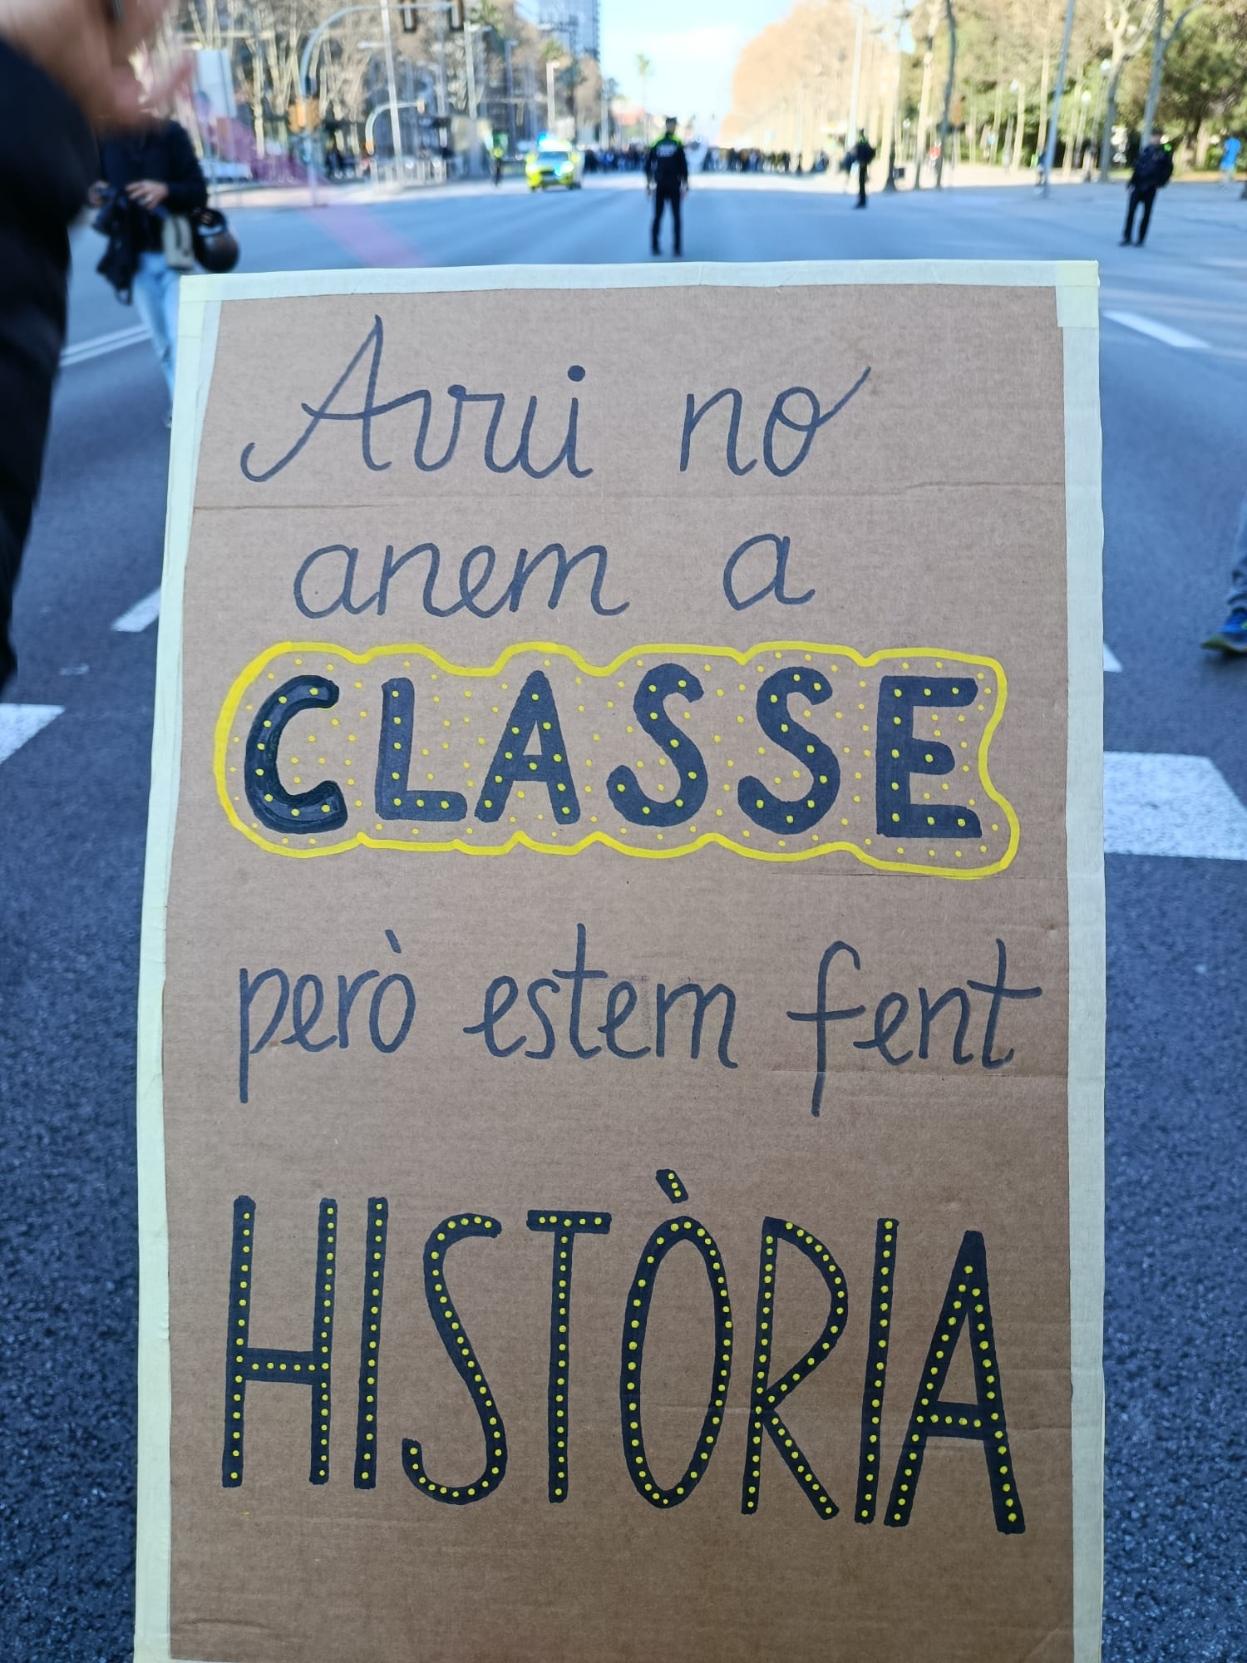 Avui no
anem a
CLASSE
però estem fent
HISTÒRIA